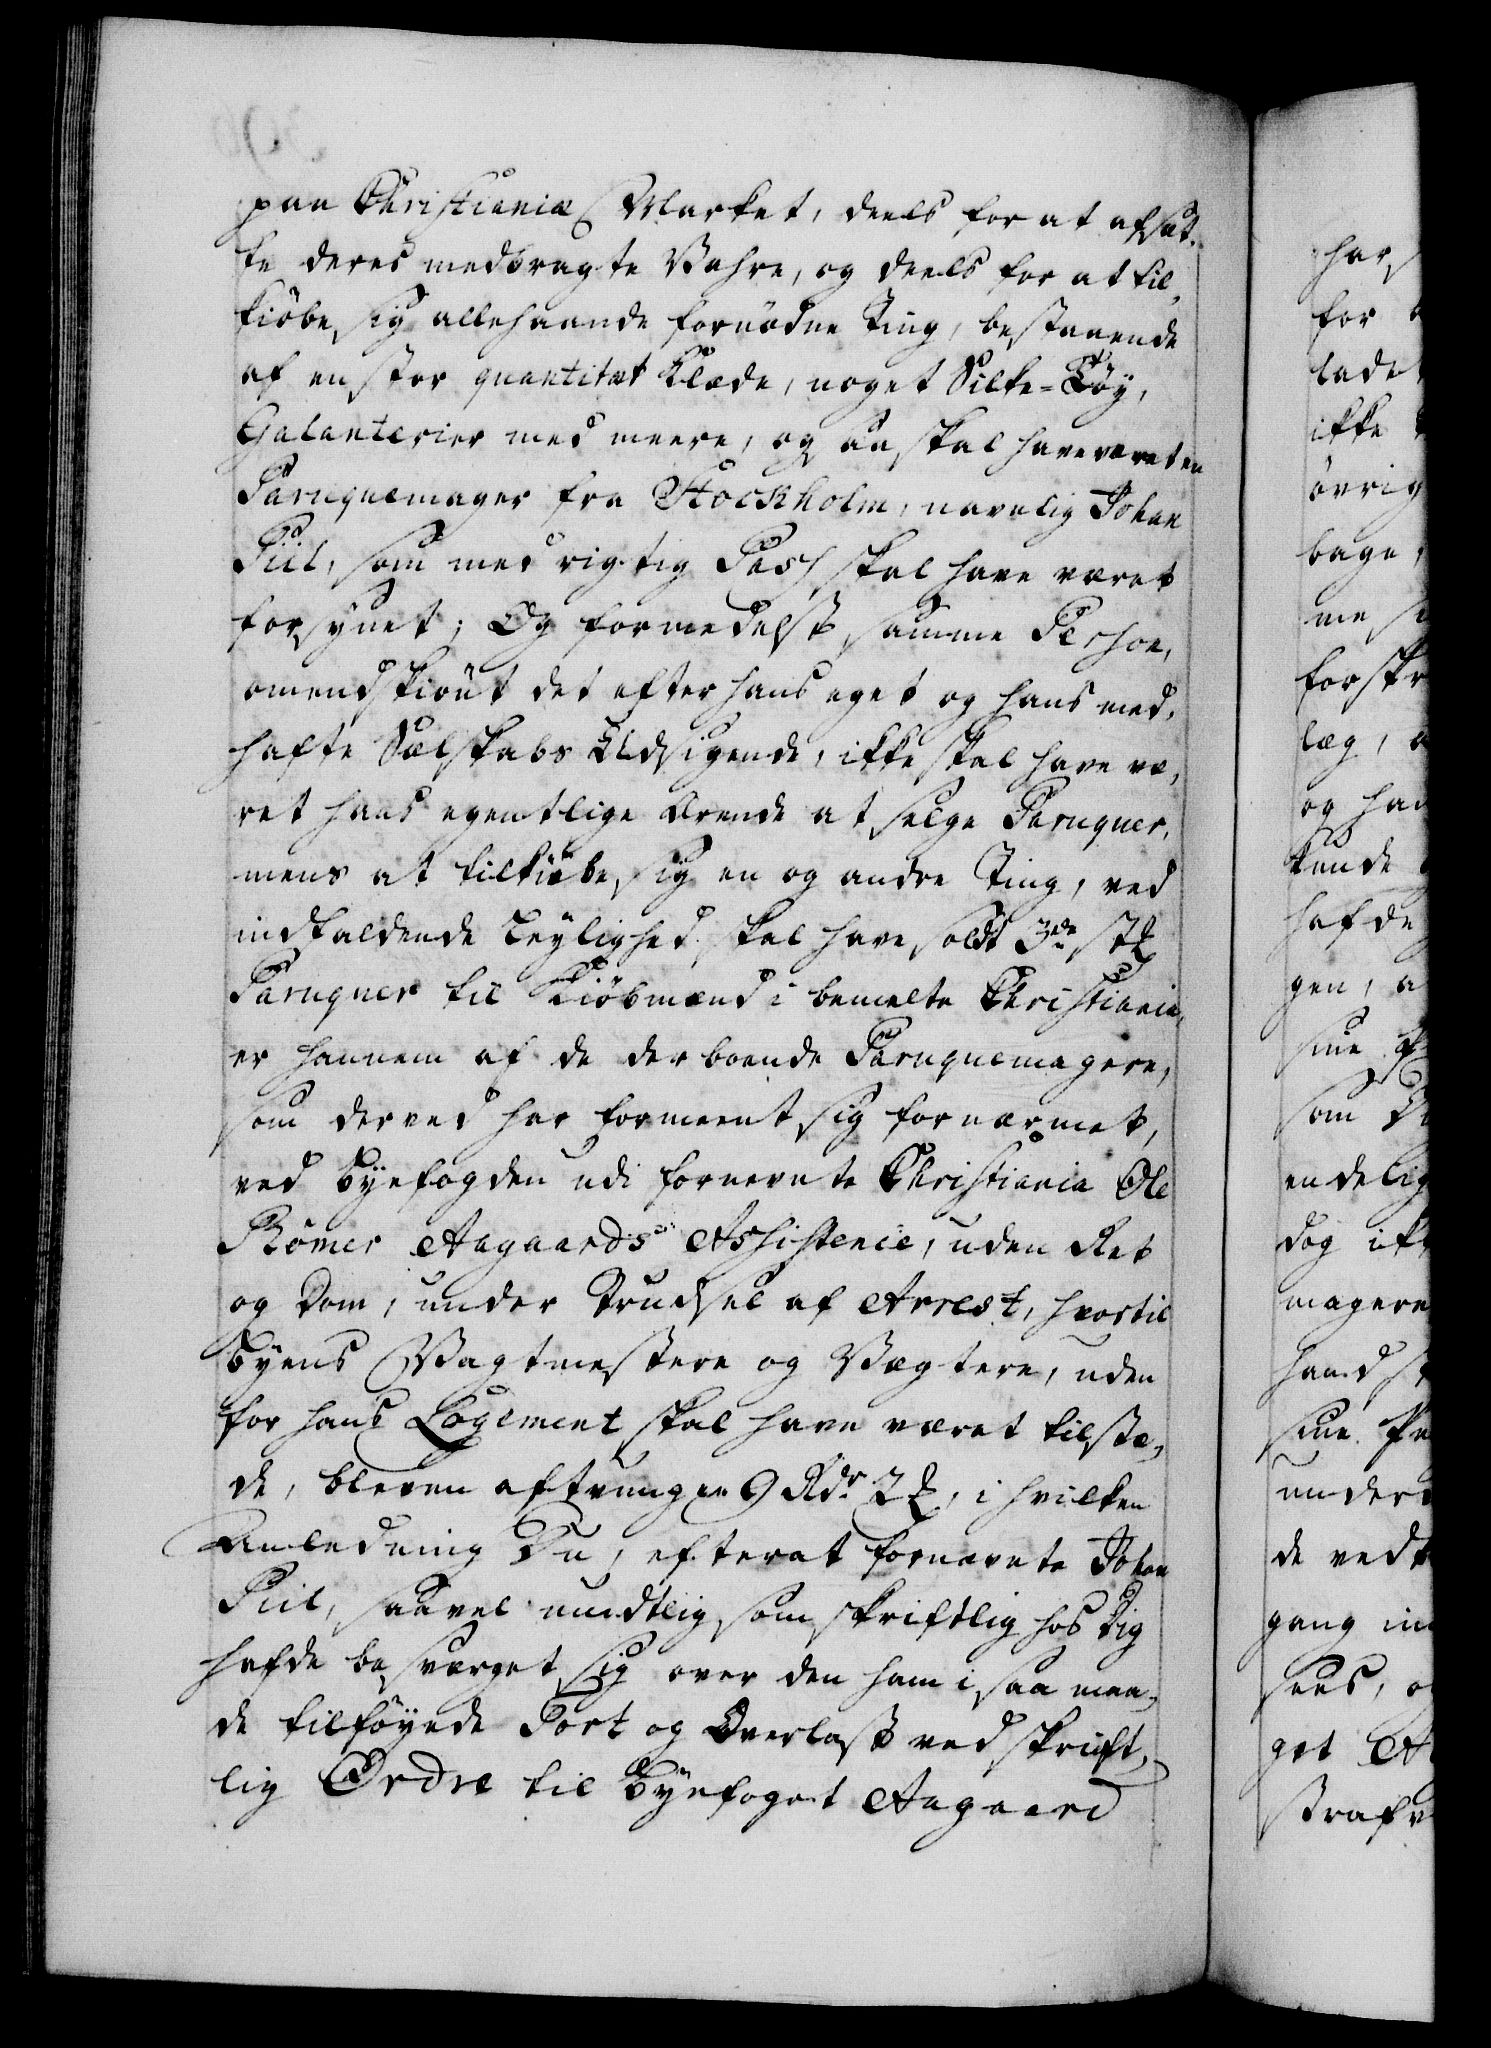 paa Christiania Market, deels for at afsæt-
te deres medbragte Wahre, og deels for at til-
kiöbe sig allehaande fornödne Ting, bestaaende
af en stor quantitæt Klæde, noget Silke-Töy,
Galanterier med meere, og aa skal have været en
Paruquemager fra Stockholm, navnlig Johan
Piil, som med rigtig Pass skal have været
forsynet; Og formedelst samme Person,
omendskiönt det efter hans eget og hans med-
hafte Sælskabs Udsigende, ikke skal have væ-
ret hans egentlige Ærende at selge Paruquer,
mens at tilkiöbe sig en og andre Ting, ved
indfaldende Leylighed skal have soldt 3de st:
Paruquer til Kiöbmænd i bemelte Christiania,
er hannem af de der boende Paruquemagere,
som derved har formeent sig fornærmet,
ved Byefogden udi fornevnte Christiania Ole
Römer Aagaards Assistence, uden Ret
og Dom, under Trudsel af Arrest, hvortil
Byens Wagtmestere og Wægtere, uden
for hans Logement skal have været tilstæ-
de, bleven aftvungen 9 Rdr 2 , i hvilken
Anledning Du, efterat fornævnte Johan
Piil, saavel mundtlig som skriftlig hos Dig
hafde besværget sig over den ham i saa maa-
de tilföyede Tort og Overlast ved skrift-
lig Ordre til Byefoget Aagaard
har
for
lade
ikke
övrig
bage,
me
forskr
læg,
og han
kende
hafde
gen, a
sine
som
endelig
dog ik
magere
hand
sine
under
de ved
gang in
sees, o
get A
straf